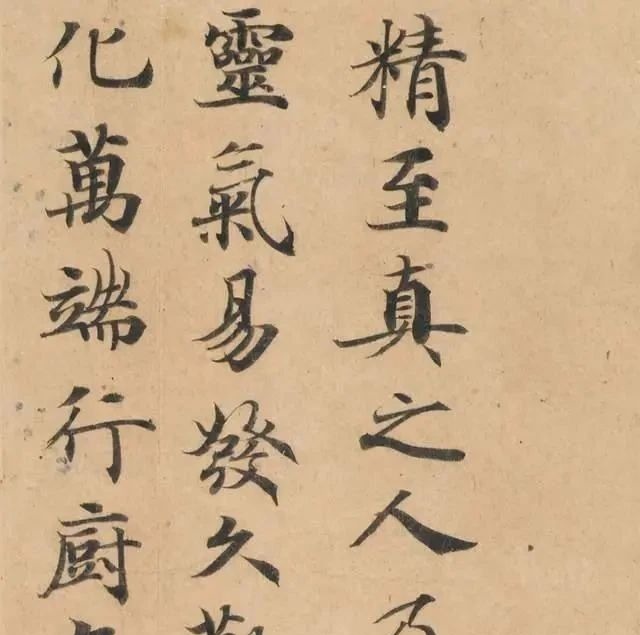 精至真之人
靈氣易發久
化萬端行廚